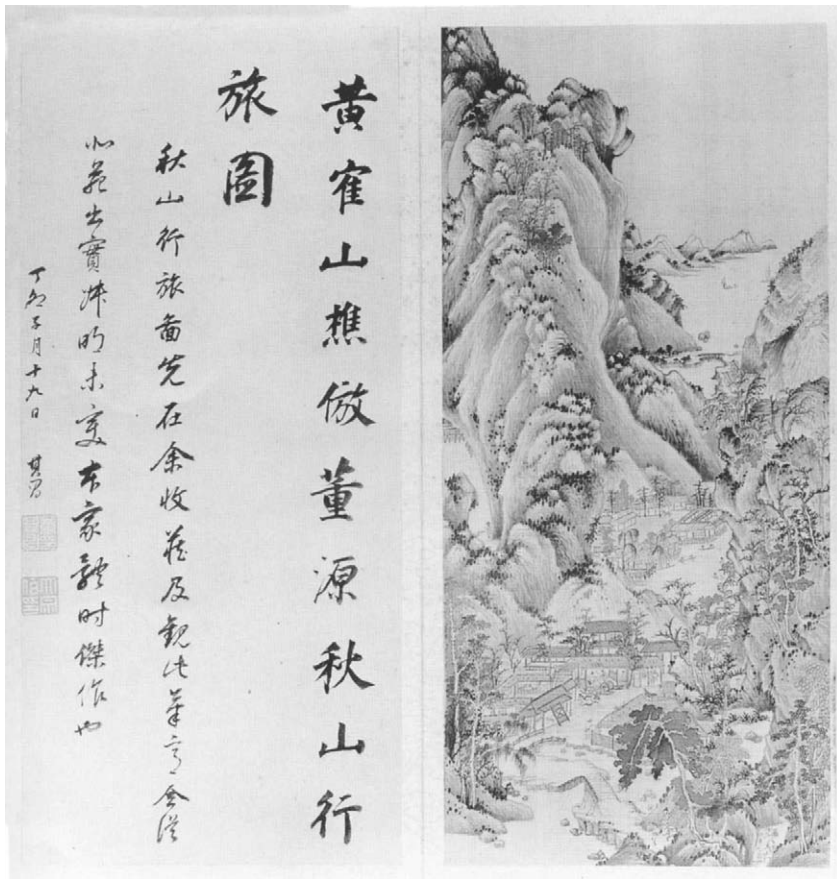 黃寉山樵倣董源秋山行
旅圖
秋山行旅圖先在余收藏及觀此筆意全從
北苑出實叔明未變本家體時傑作也
丁卯子月十九日 其昌